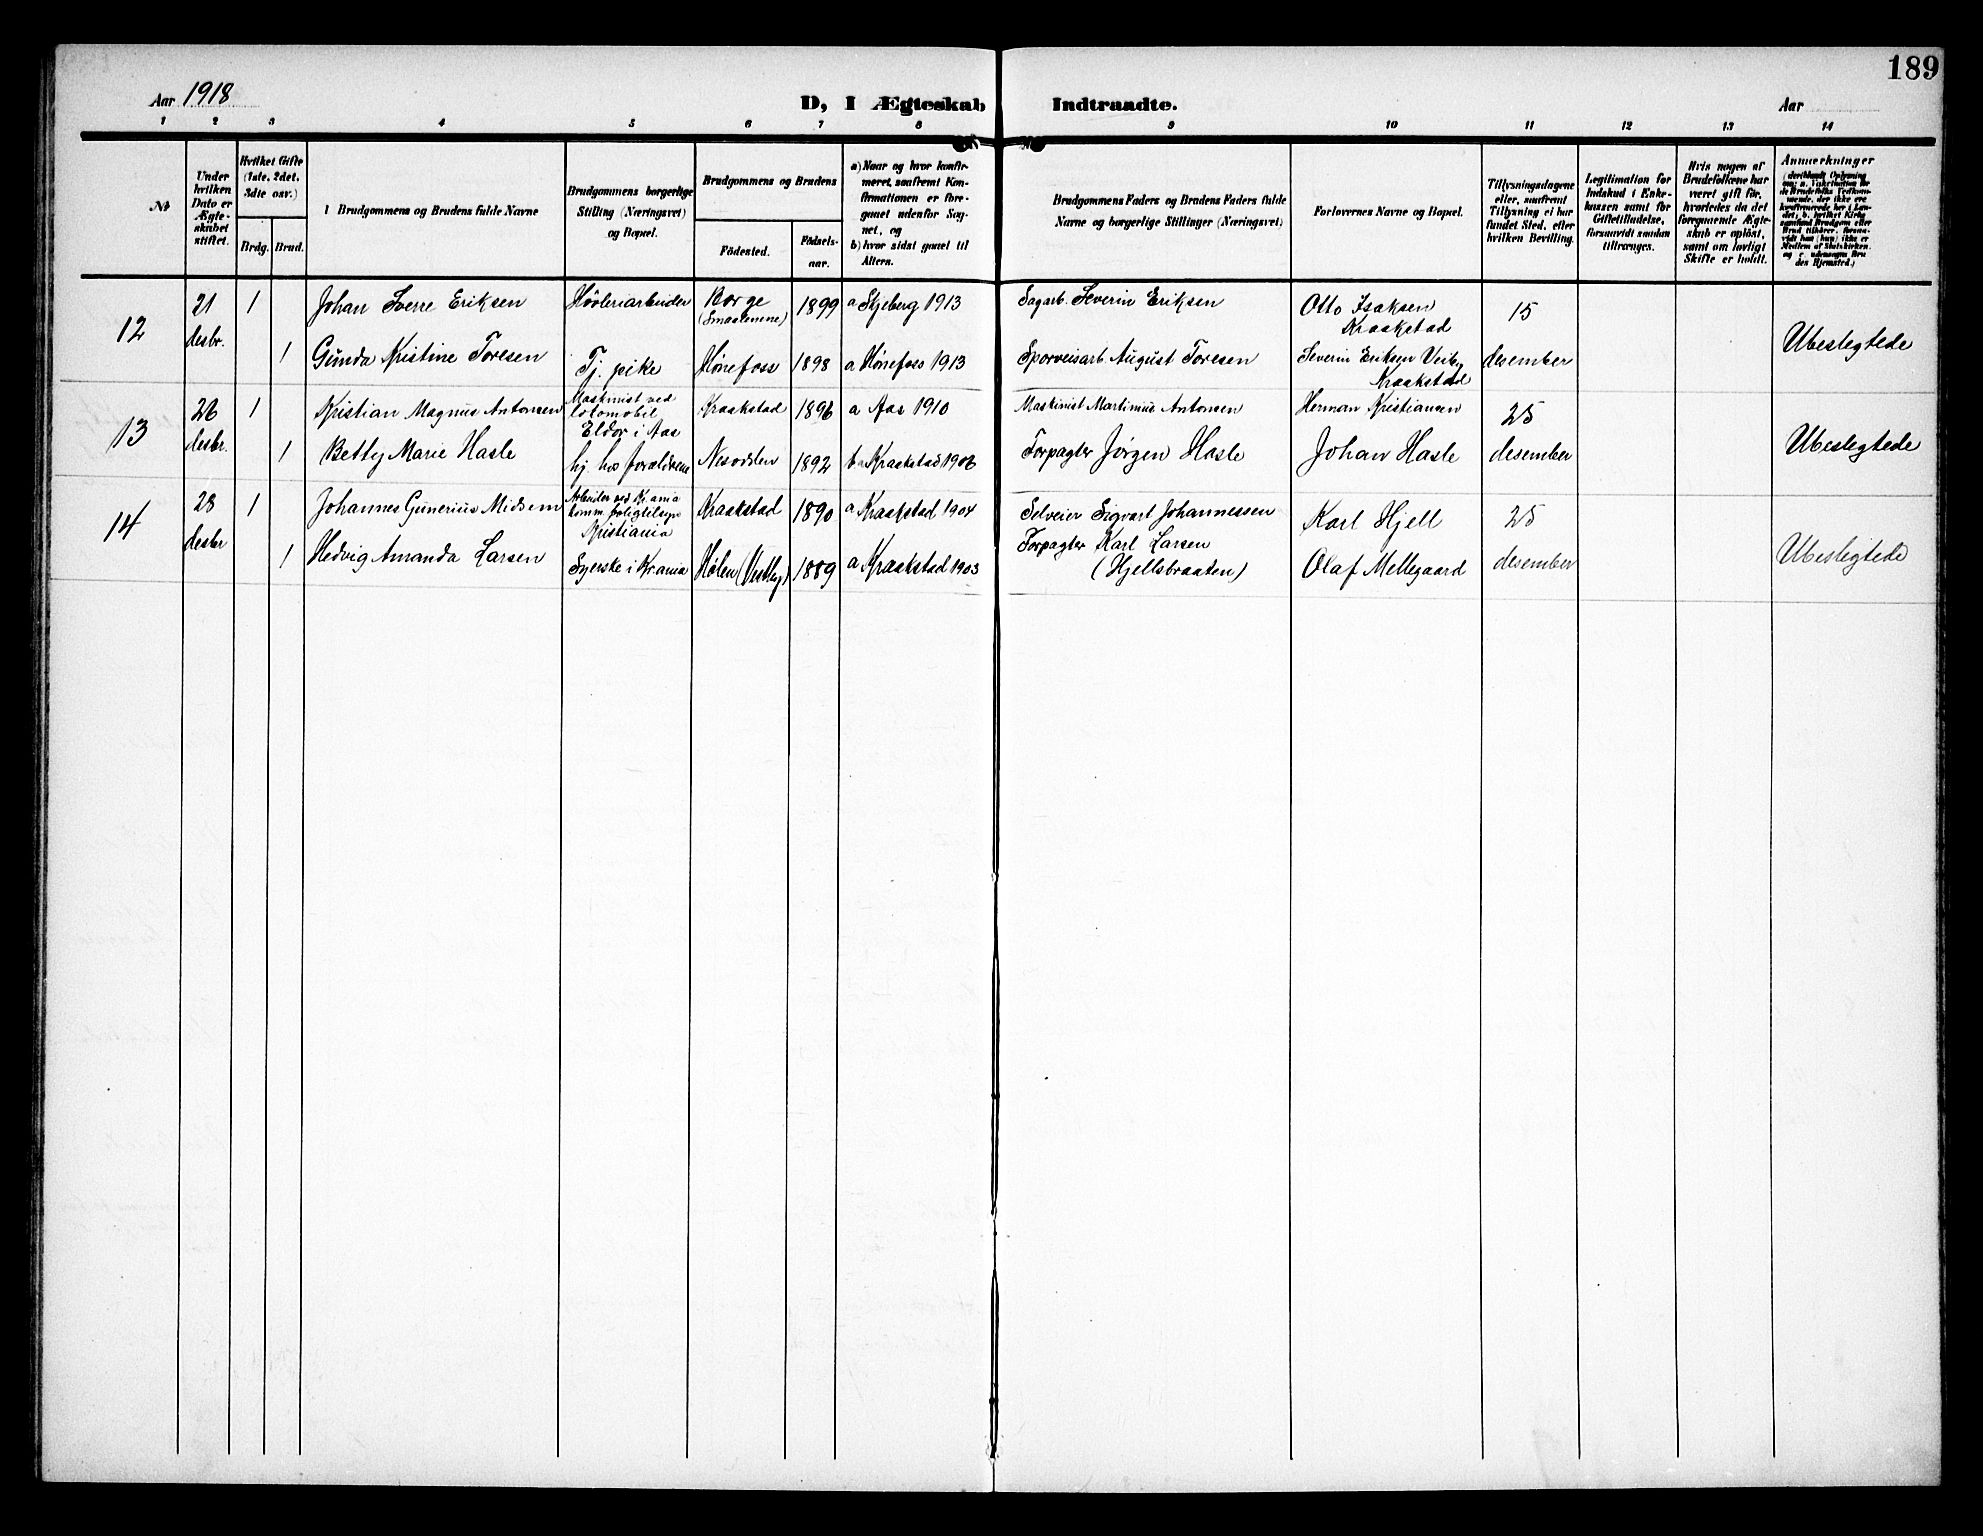 189
Aar 1918
D, I Ægteskab Indtraadte.
Aar
1 2 3 4 5 6 7 8 9 10 11 12 13 14
№
Under
hvilken
Dato er
Ægte-
skabet
stiftet.
Hvilket Gifte
(1ste, 2det,
3die osv.)
Brdg. Brud.
Brudgommens og Brudens fulde Navne
Brudgommens borgerlige
Stilling (Næringsvei)
og Bopæl.
Brudgommens og Brudens
Fødested.
Fødsels-
aar.
a) Naar og hvor konfir-
meret, saafremt Kon-
firmationen er fore-
gaaet udenfor Sog-
net, og
b) hvor sidst gaaet til
Alters.
Brudgommens Faders og Brudens Faders fulde
Navne og borgerlige Stillinger (Næringsvei)
Forlovernes Navne og Bopæl.
Tillysningsdagene
eller, saafremt
Tillysning ei har
fundet Sted, efter
hvilken Bevilling.
Legitimation for
Indskud i Enke-
kassen samt for
Giftetilladelse,
forsaavidt saadan
tiltrænges.
Hvis nogen af
Brudefolkene har
været gift før,
hvorledes da det
foregaaende Ægte-
skab er opløst,
samt om lovligt
Skifte er holdt.
Anmærkninger
12
21
desbr.
1
Johan Sverre Eriksen
Høvleriarbeider
Borge
(Smaalenene)
1899
a Skjeberg 1913
Sagarb. Severin Eriksen
Otto Isaksen
Kraakstad
15
desember
Ubeslegtede
1
Gunda Kristine Toresen
Tj. pike
Hønefoss
1898
a Hønefoss 1913
Sporveisarb August Toresen
Severin Eriksen Veiby
Kraakstad
13
26
desbr.
1
Kristian Magnus Antonsen
Maskinist ved
lokomobil
Eldor i Aas
Kraakstad
1896
a Aas 1910
Maskinist Martinius Antonsen
Herman Kristiansen
25
desember
Ubeslegtede
1
Betty Marie Hasle
hj. hos forældrene
Nesodden
1892
Kraakstad 1906
Forpagter Jørgen Hasle
Johan Hasle
14
28
desbr
1
Johannes Gunerius Midsem
Arbeider ved Kr.ania
komm. boligtilsyn
Kristiania
Kraakstad
1890
a Kraakstad 1904
Selveier Sigvart Johannessen
Karl Hjell
25
desember
Ubeslegtede
1
Hedvig Amanda Larsen
Syerske i Kr.ania
Hølen (Vestby)
1889
a Kraakstad 1903
Forpagter Karl Larsen
(Hjellsbraaten)
Olaf Mellegaard